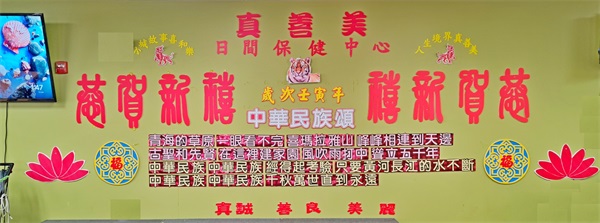 真善美
日間保健中心
境界真善美
恭賀新禧
禧新賀恭
歲次壬寅年
中華民族頌
青海的草原 一眼看不完 喜瑪拉雅山 峰峰相連到天邊
古聖和先賢 在這裡建家園 風吹雨打中 聳立五千年
中華民族 中華民族 經得起考驗 只要黃河長江的水不斷
中華民族 中華民族 千秋萬世直到永遠
福
福
真誠 善良 美麗